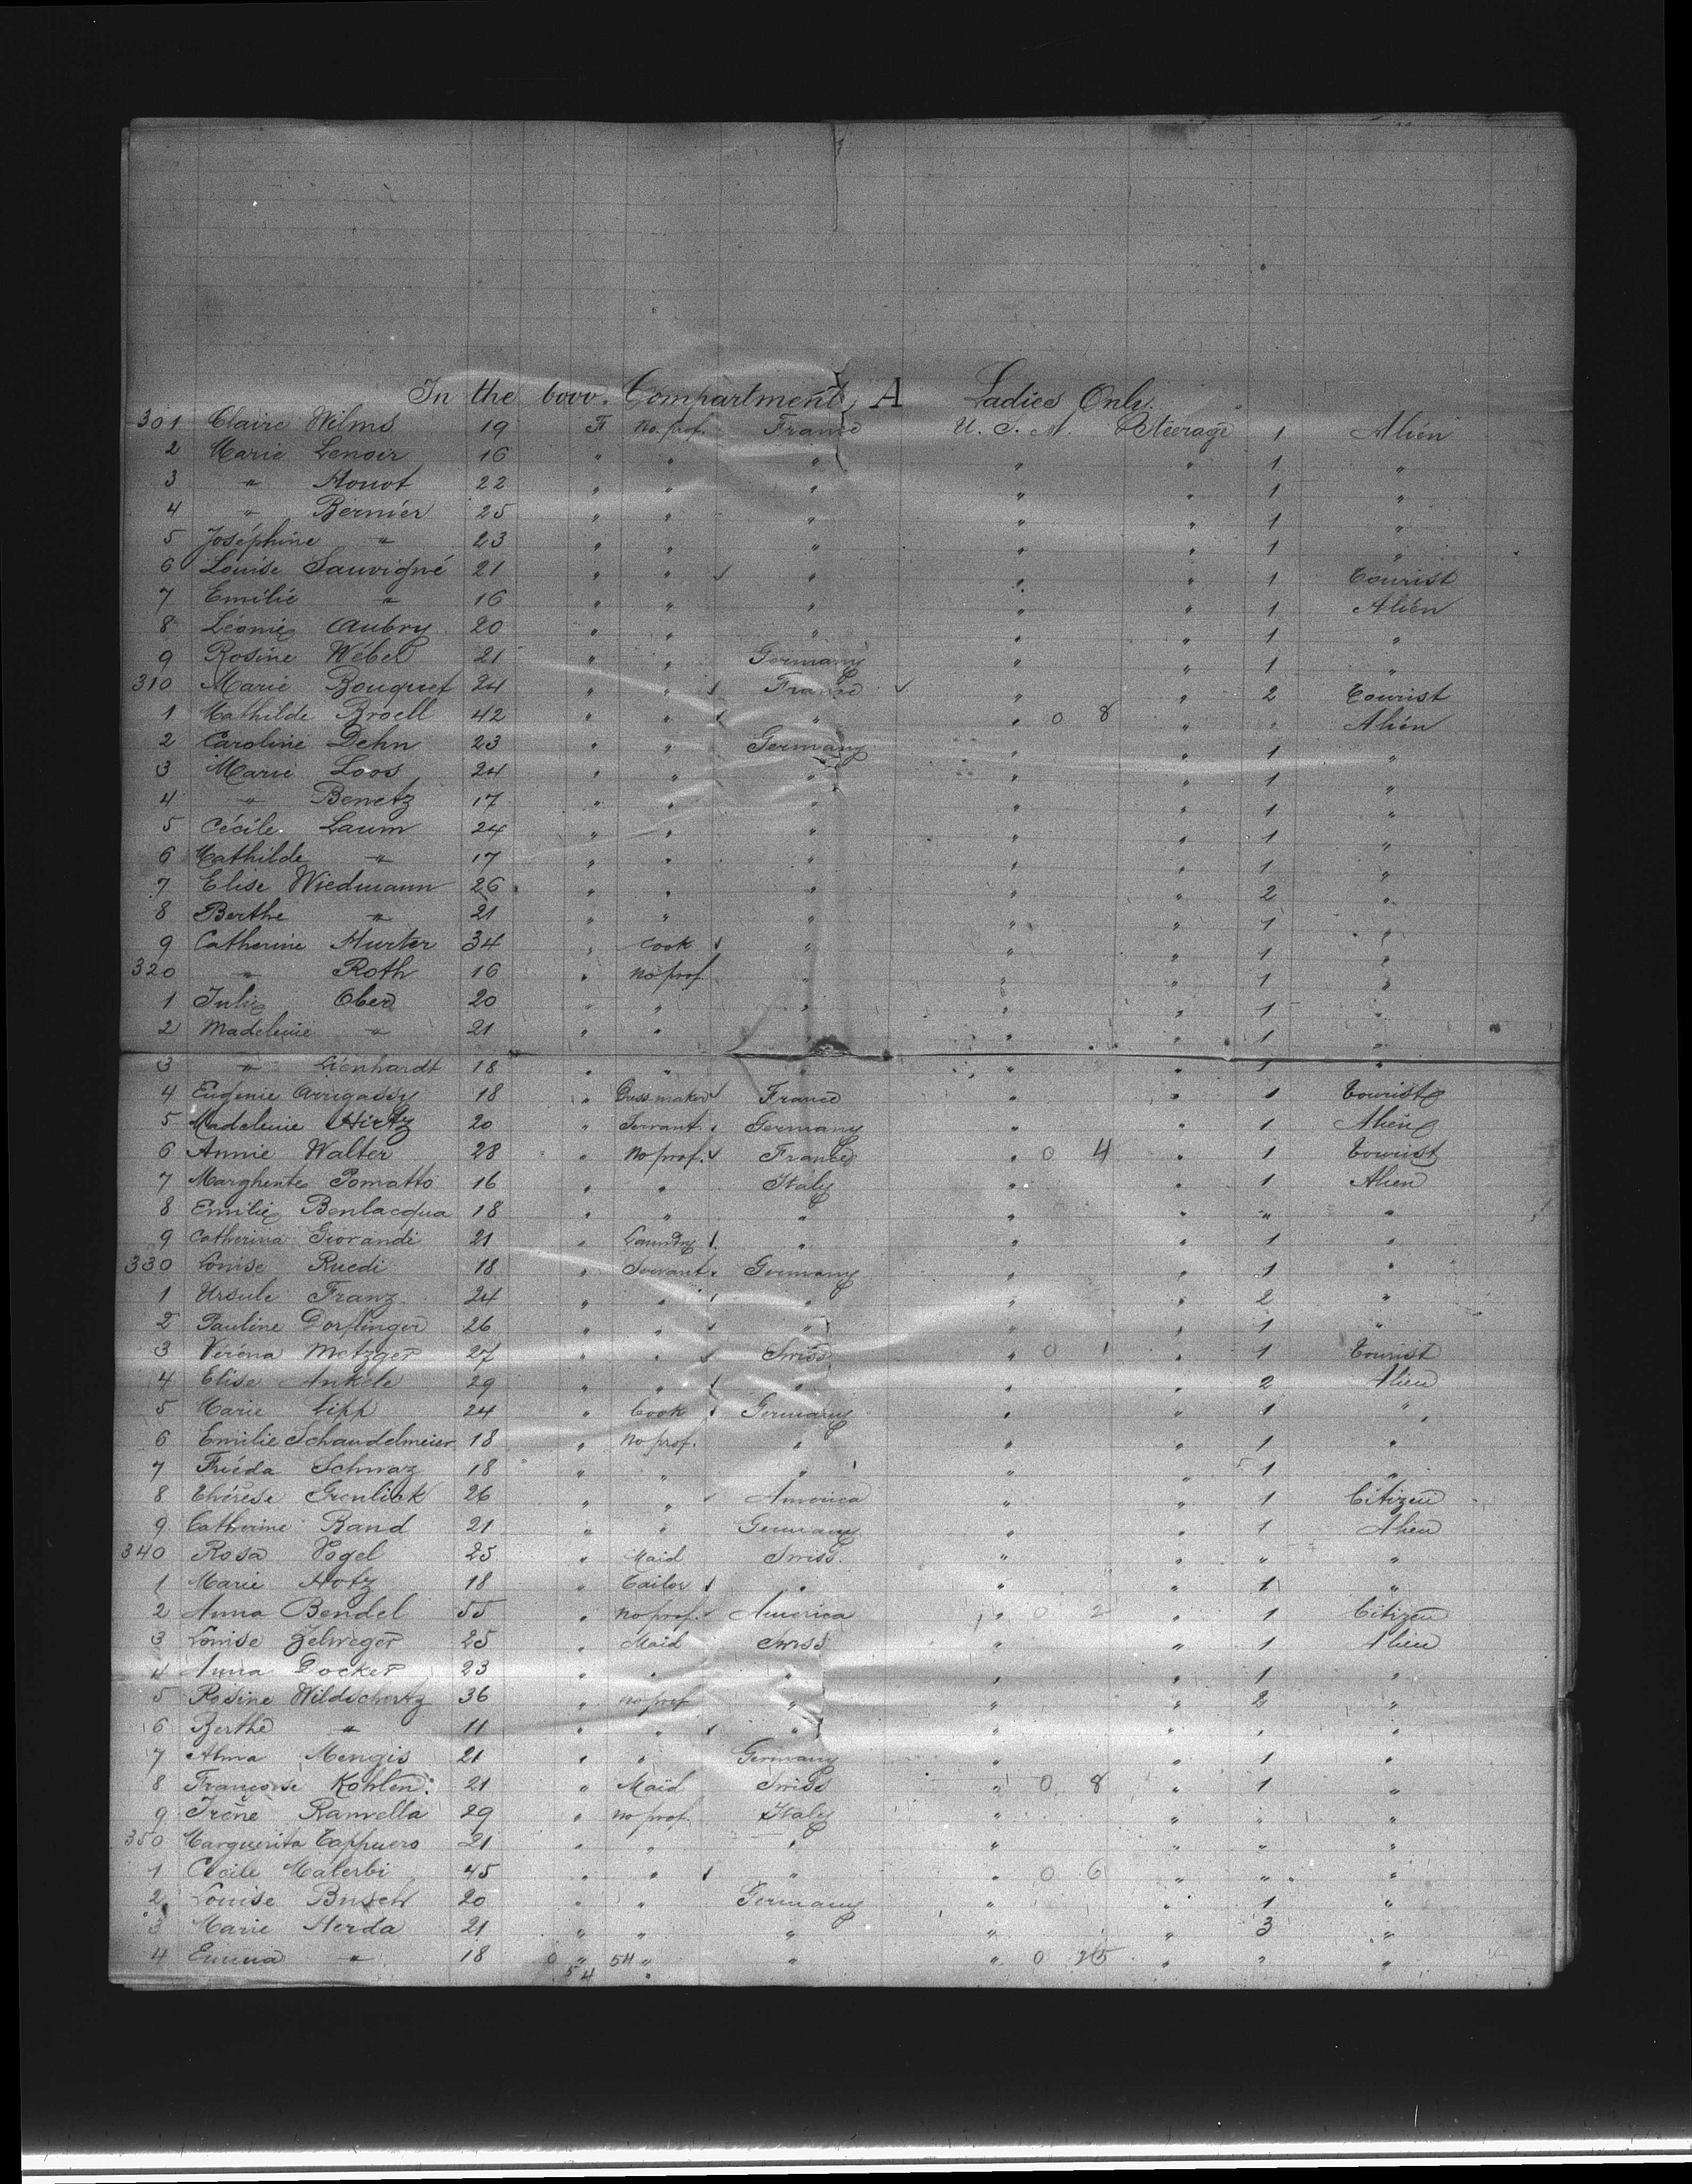 In the bow. Compartment A Ladies Only.
301 Claire Wilms 19 F no prof. France U. S. A. Steerage 1 Alien
2 Marie Lenoir 16 " " " " " 1 "
3 " Honot 22 " " " " " 1 "
4 " Bernier 25 " " " " " 1 "
5 Joséphine " 23 " " " " " 1 "
6 Louise Sauvigné 21 " " " " " 1 Tourist
7 Emilie " 16 " " " " " 1 Alien
8 Léonie Aubry 20 " " " " " 1 "
9 Rosine Weber 21 " " Germany " " 1 "
310 Marie Bouquet 24 " " France " " 2 Tourist
1 Mathilde Broell 42 " " " " 0 8 " " Alien
2 Caroline Dehn 23 " " Germany " " 1 "
3 Marie Loos 24 " " " " " 1 "
4 " Benetz 17 " " " " " 1 "
5 Cécile Laum 24 " " " " " 1 "
6 Mathilde " 17 " " " " " 1 "
7 Elise Wiedmann 26 " " " " " 2 "
8 Berthe " 21 " " " " " 1 "
9 Catherine Hurter 34 " cook " " " 1 "
320 " Roth 16 " no prof " " " 1 "
1 Julie Ober 20 " " " " " 1 "
2 Madeleine " 21 " " " " 1 "
3 " Lienhardt 18 " " " " " 1 "
4 Eugenie Arrigassy 18 " Dressmaker France " " 1 Tourist
5 Madeleine Hirtz 20 " Servant Germany " " 1 Alien
6 Annie Walter 28 " no prof. France " 0 4 " 1 Tourist
7 Marghente Pomatto 16 " " Italy " " 1 Alien
8 Emilie Benlacqua 18 " " " " " " "
9 Catherina Giorandi 21 " Laundry " " " 1 "
330 Louise Ruedi 18 " Servant Germany " " 1 "
1 Ursule Franz 24 " " " " " 2 "
2 Pauline Dorflinger 26 " " " " " 1 "
3 Veréna Metzger 27 " " Swiss " 0 1 " 1 Tourist
4 Elise Ankele 29 " " " " " 2 Alien
5 Marie Lipp 24 " Cook Germany " " 1 "
6 Emilie Schaudelmeier 18 " no prof. " " " 1 "
7 Frieda Schwaz 18 " " " " " 1 "
8 Thérèse Grenlink 26 " " America " " 1 Citizen
9 Catherine Band 21 " " Germany " " 1 Alien
340 Rosa Vogel 25 " Maid Swiss " " " "
1 Marie Hotz 18 " Tailor " " " 1 "
2 Anna Bendel 55 " no prof. America " 0 2 " 1 Citizen
3 Louise Zelweger 25 " Maid Swiss " " 1 Alien
4 Anna Docker 23 " " " " " 1 "
5 Rosine Wildschertz 36 " no prof " " " 2 "
6 Berthe " 11 " " " " " " "
7 Alma Mengis 21 " " Germany " " 1 "
8 Françoise Kohlen 21 " Maid Swiss " 0 8 " 1 "
9 Irène Ramella 29 " no prof. Italy " " " "
350 Marguerita Tappuero 21 " " " " " " "
1 Cécile Malerbi 45 " " " " 0 6 " " "
2 Louise Busch 20 " " Germany " " 1 "
3 Marie Herda 21 " " " " " 3 "
4 Emma " 18 0 " 54 " " " 0 25 " " "
54 "